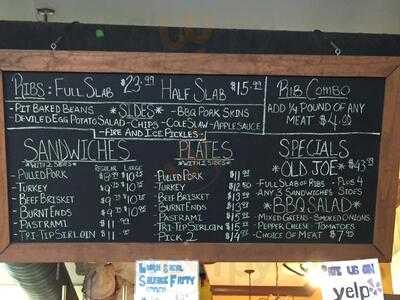 RIBS: FULL SLAB $23.99 HALF SLAB $15.99
RIB COMBO
ADD 1/4 POUND OF ANY
MEAT $4.00
-PIT BAKED BEANS *SIDES* -BBQ PORK SKINS
-DEVILED EGG POTATO SALAD -CHIPS -COLE SLAW -APPLESAUCE
-FIRE AND ICE PICKLES-
SANDWICHES
*WITH 2 SIDES*
REGULAR LARGE
-PULLED PORK
-TURKEY
-BEEF BRISKET
-BURNT ENDS
-PASTRAMI
-TRI-TIP SIRLOIN $11
PLATES
*WITH 2 SIDES*
-PULLED PORK $11
-TURKEY $12
-BEEF BRISKET $13
-BURNT ENDS $13
-PASTRAMI $15
-TRI-TIP SIRLOIN $15
PICK 2 $14
SPECIALS
*OLD JOE* $43.99
-FULL SLAB OF RIBS -PLUS 4
-ANY 3 SANDWICHES SIDES
*BBQ SALAD*
-MIXED GREENS -SMOKED ONIONS
-PEPPER CHEESE -TOMATOES
-CHOICE OF MEAT $7.99
US ON
yelp